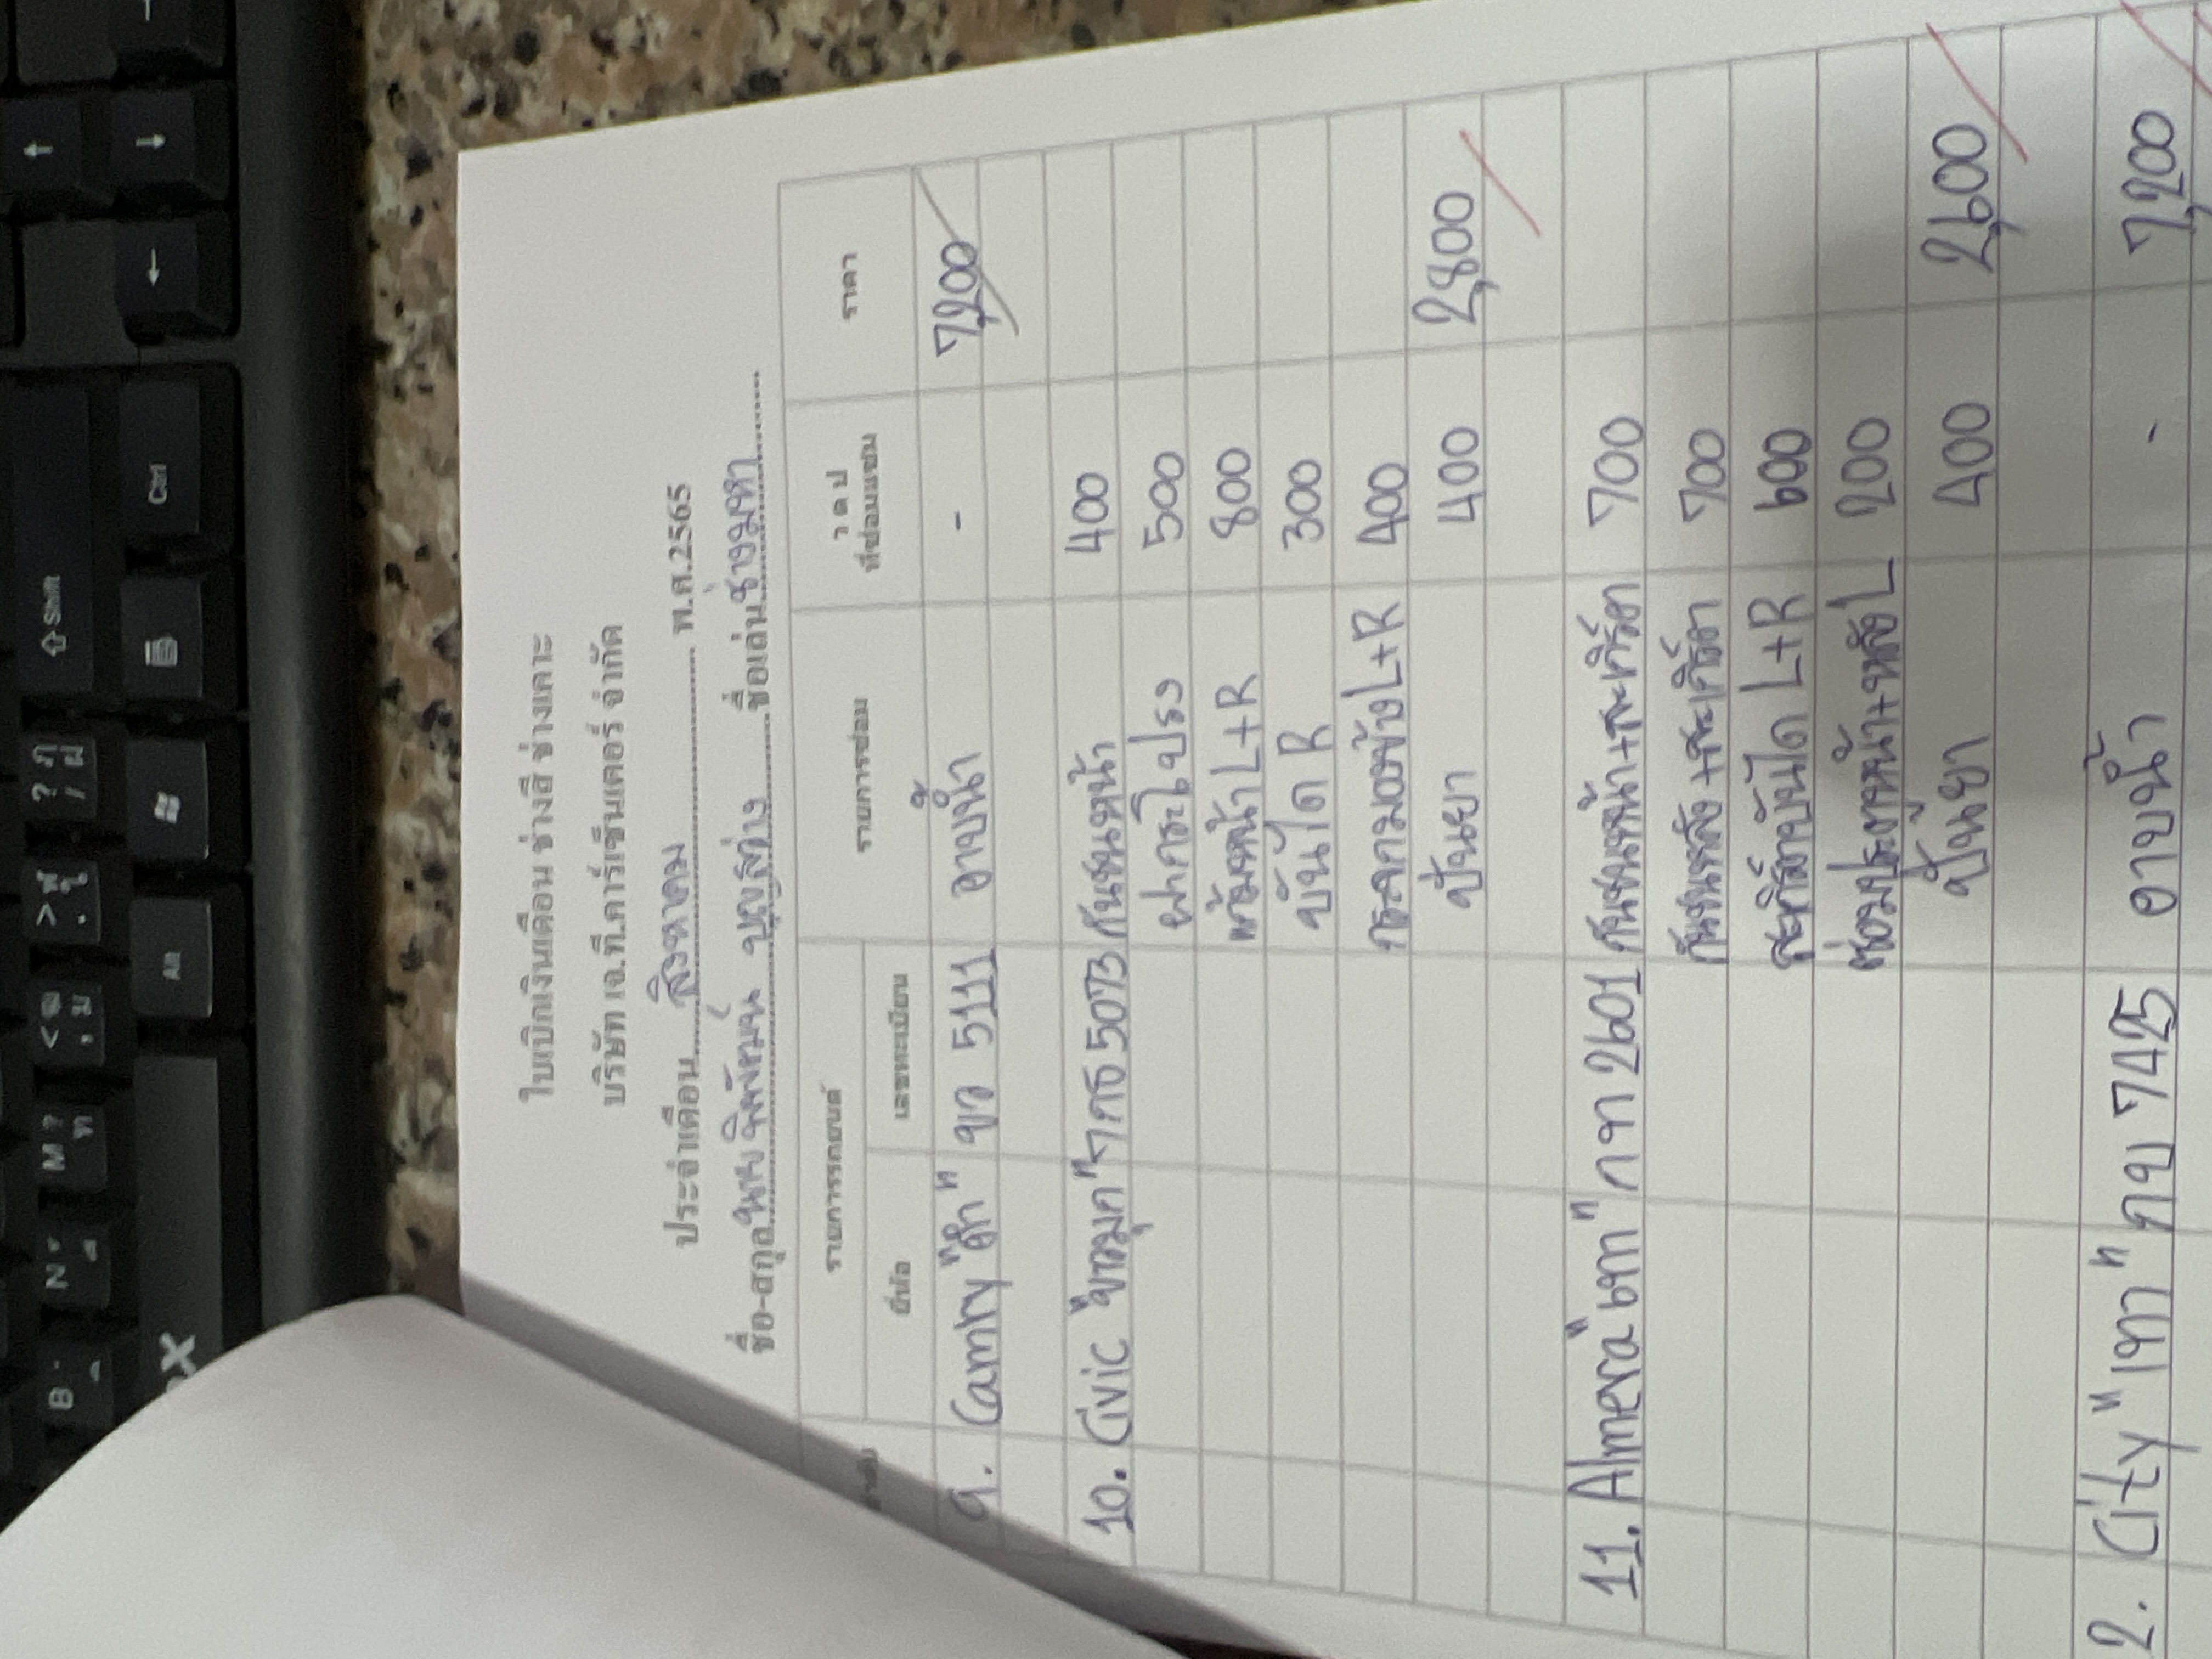 ใบเบิกเงินเดือน ช่างสี ช่างเคาะ
บริษัท เจ.ที.คาร์เซ็นเตอร์ จำกัด
ประจำเดือน สิงหาคม พ.ศ.2565
ชื่อ-สกุล นาย พิพัฒน์ บุญสว่าง ชื่อเล่น ช่างมหา
ลำดับ รายการรถยนต์ รายการซ่อม ว ด ป ที่ซ่อมแซม ราคา
ยี่ห้อ เลขทะเบียน
9. Camry "ดำ" ขว 5111 อาบน้ำ - 7,200
10. Civic "ขาวมุก" 7กธ 5073 กันชนหน้า 400
ฝากระโปรง 500
แก้มหน้า L+R 800
บันได R 300
กระจกมองข้าง L+R 400
ปั้นยา 400 2,800
11. Almera "เทา" กจ 2601 กันชนหน้า+สะเกิร์ต 700
กันชนหลัง +สะเกิร์ต 700
สะเกิร์ตบันได L+R 600
ซ่อมประตูหน้า+หลัง L 200
ปั้นยา 400 2,600
2. City "เทา" กย 7425 อาบน้ำ - 7,200
Shift
Ctrl
Alt
? ภ
/ ฝ
> ฬ
. ใ
< ฒ
, ม
M ?
ท
N
B